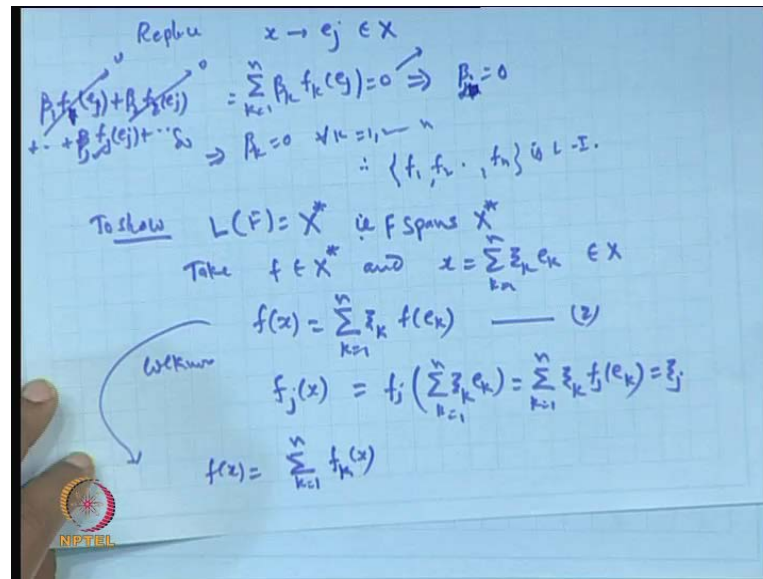 Replace x → ej ∈ X
β1 f1(ej) + β2 f2(ej) 0 0 = ∑ k=1 n βk fk(ej) = 0 ⇒ βj = 0
+ ·· + βj fj(ej) + ··· ⇒ βk = 0 ∀ k = 1, — n
∴ {f1, f2 ·, fn} is L-I.
To show L(F) = X* ie F spans X*
Take f ∈ X* and x = ∑ n ξk ek ∈ X
f(x) = ∑ k=1 n ξk f(ek) —— (2)
We know
fj(x) = fj(∑ k=1 n ξk ek) = ∑ k=1 n ξk fj(ek) = ξj
f(x) = ∑ k=1 n fk(x)
NPTEL